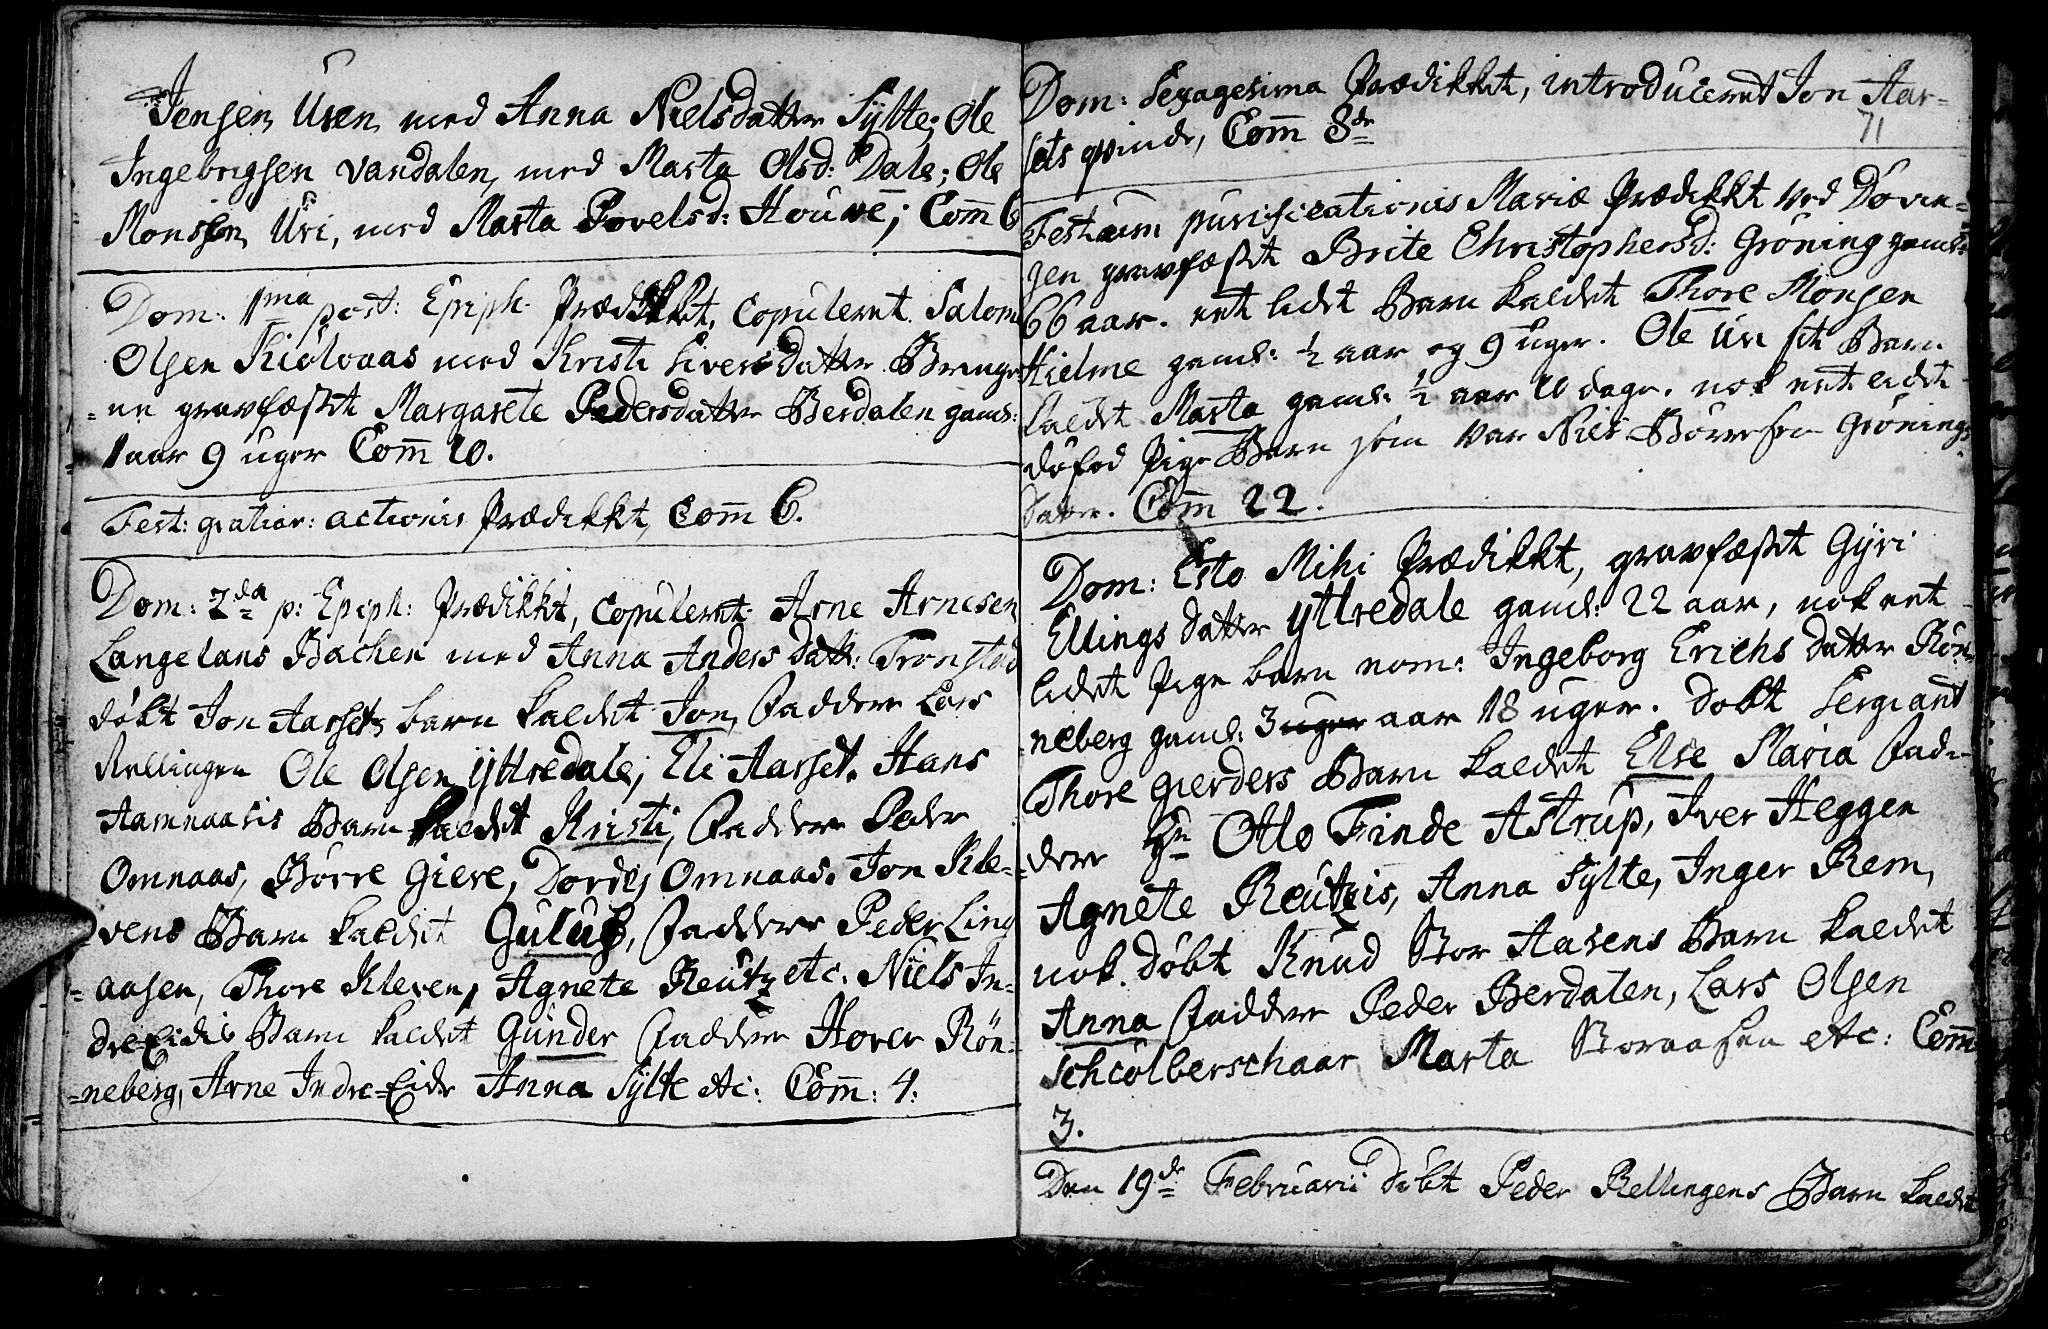 Jensen Uren med Anna Nielsdatter Sylte; Ole
Ingebrigsen vandalen, med Marta Olsd: Dale; Ole
Monssen Uri, med Marta Povelsd: Houwe; Com̄ 6
Dom: 1ma post: Epiph. Prædikket, Copuleret Salom
Olsen Kiölvaas med Kristi Siversdatter Bringe
=ne gravfæstet Margarete Pedersdatter Berdalen gaml:
1 aar 9 uger Com̄ 10.
Fest: gratiar: actionis Prædikket, Com̄ 6.
Dom: 2da p: Epiph: Prædikket, Copuleret Arne Arnesen
Langelans Bachen med Anna Anders datt: Tronstad
döbt Jon Aassets barn kaldet Jon, Faddere Lars
Rellingen Ole Olsen Yttredale, Eli Aarset. Hans
Aamnaasis Barn kaldet Kristi, Faddere Peder
Omnaas, Börre Giere, Dordej Omnaas. Jon Kle-
vens Barn kaldet Guluf, Faddere Peder Ling
=aasen, Thore Kleven, Agnete Reutz etc. Niels In=
dre=Eidis Barn kaldet Gunder Faddere Hover Rön=
=neberg, Arne Indre=Eide Anna Sylte etc: Com̄: 4:
Dom: Sexagesima Prædikket, introduceret Jon Aar-
71
sets qvinde, Com̄ 8de
Festum purificationis Mariæ Prædikket ved Dövin=
gen gravfæstet Brite Christophersd: Gröning gaml:
66 aar. eet lidet Barn kaldet Thore Monsen
Hielme gaml: ½ aar og 9 uger. Ole Uri sit Barn
kaldet Marta gaml: ½ aar 10 dage. nok eet lidet
döfød Pige Barn som var Niels Börresen Grönings
Datter. Com̄ 22.
Dom: Esto Mihi Prædikket, gravfæstet Gyri
Ellings datter Yttredale gaml: 22 aar, nok eet
lidet Pige barn nom: Ingeborg Erichs datter Rön=
=neberg gaml: 3 uger aar 18 uger. döbt Sergiant
Thore Gierders Barn kaldet Else Maria Fad=
=dere Hr Otto Finde Astrup, Iver Heggen
Agnete Reutzis, Anna Sylte, Inger Rem,
nok döbt Knud Stor Aasens Barn kaldet
Anna Faddere Peder Berdalen, Lars Olsen
Schiolberschaar Marta Storaasen etc: Com̄
3.
Den 19de Februarii döbt Peder Rellingens Barn kaldet